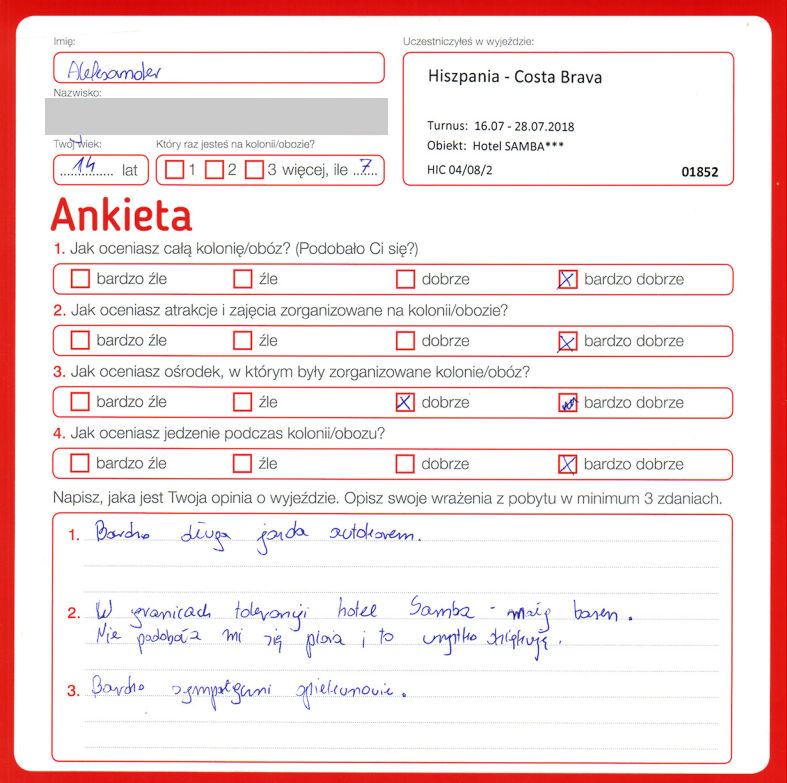 Imię:
Aleksander
Nazwisko:
Twój wiek:
14 lat
Który raz jesteś na kolonii/obozie?
1 2 3 więcej, ile ..7...
Uczestniczyłeś w wyjeździe:
Hiszpania - Costa Brava
Turnus: 16.07 - 28.07.2018
Obiekt: Hotel SAMBA***
HIC 04/08/2 01852
Ankieta
1. Jak oceniasz całą kolonię/obóz? (Podobało Ci się?)
bardzo źle źle dobrze bardzo dobrze
2. Jak oceniasz atrakcje i zajęcia zorganizowane na kolonii/obozie?
bardzo źle źle dobrze bardzo dobrze
3. Jak oceniasz ośrodek, w którym były zorganizowane kolonie/obóz?
bardzo źle źle dobrze bardzo dobrze
4. Jak oceniasz jedzenie podczas kolonii/obozu?
bardzo źle źle dobrze bardzo dobrze
Napisz, jaka jest Twoja opinia o wyjeździe. Opisz swoje wrażenia z pobytu w minimum 3 zdaniach.
1. Bardzo długa jazda autokarem.
2. W granicach tolerancji hotel Samba - mały basen.
Nie podobała mi się plaża i to wszystko dziękuję.
3. Bardzo sympatyczni opiekunowie.